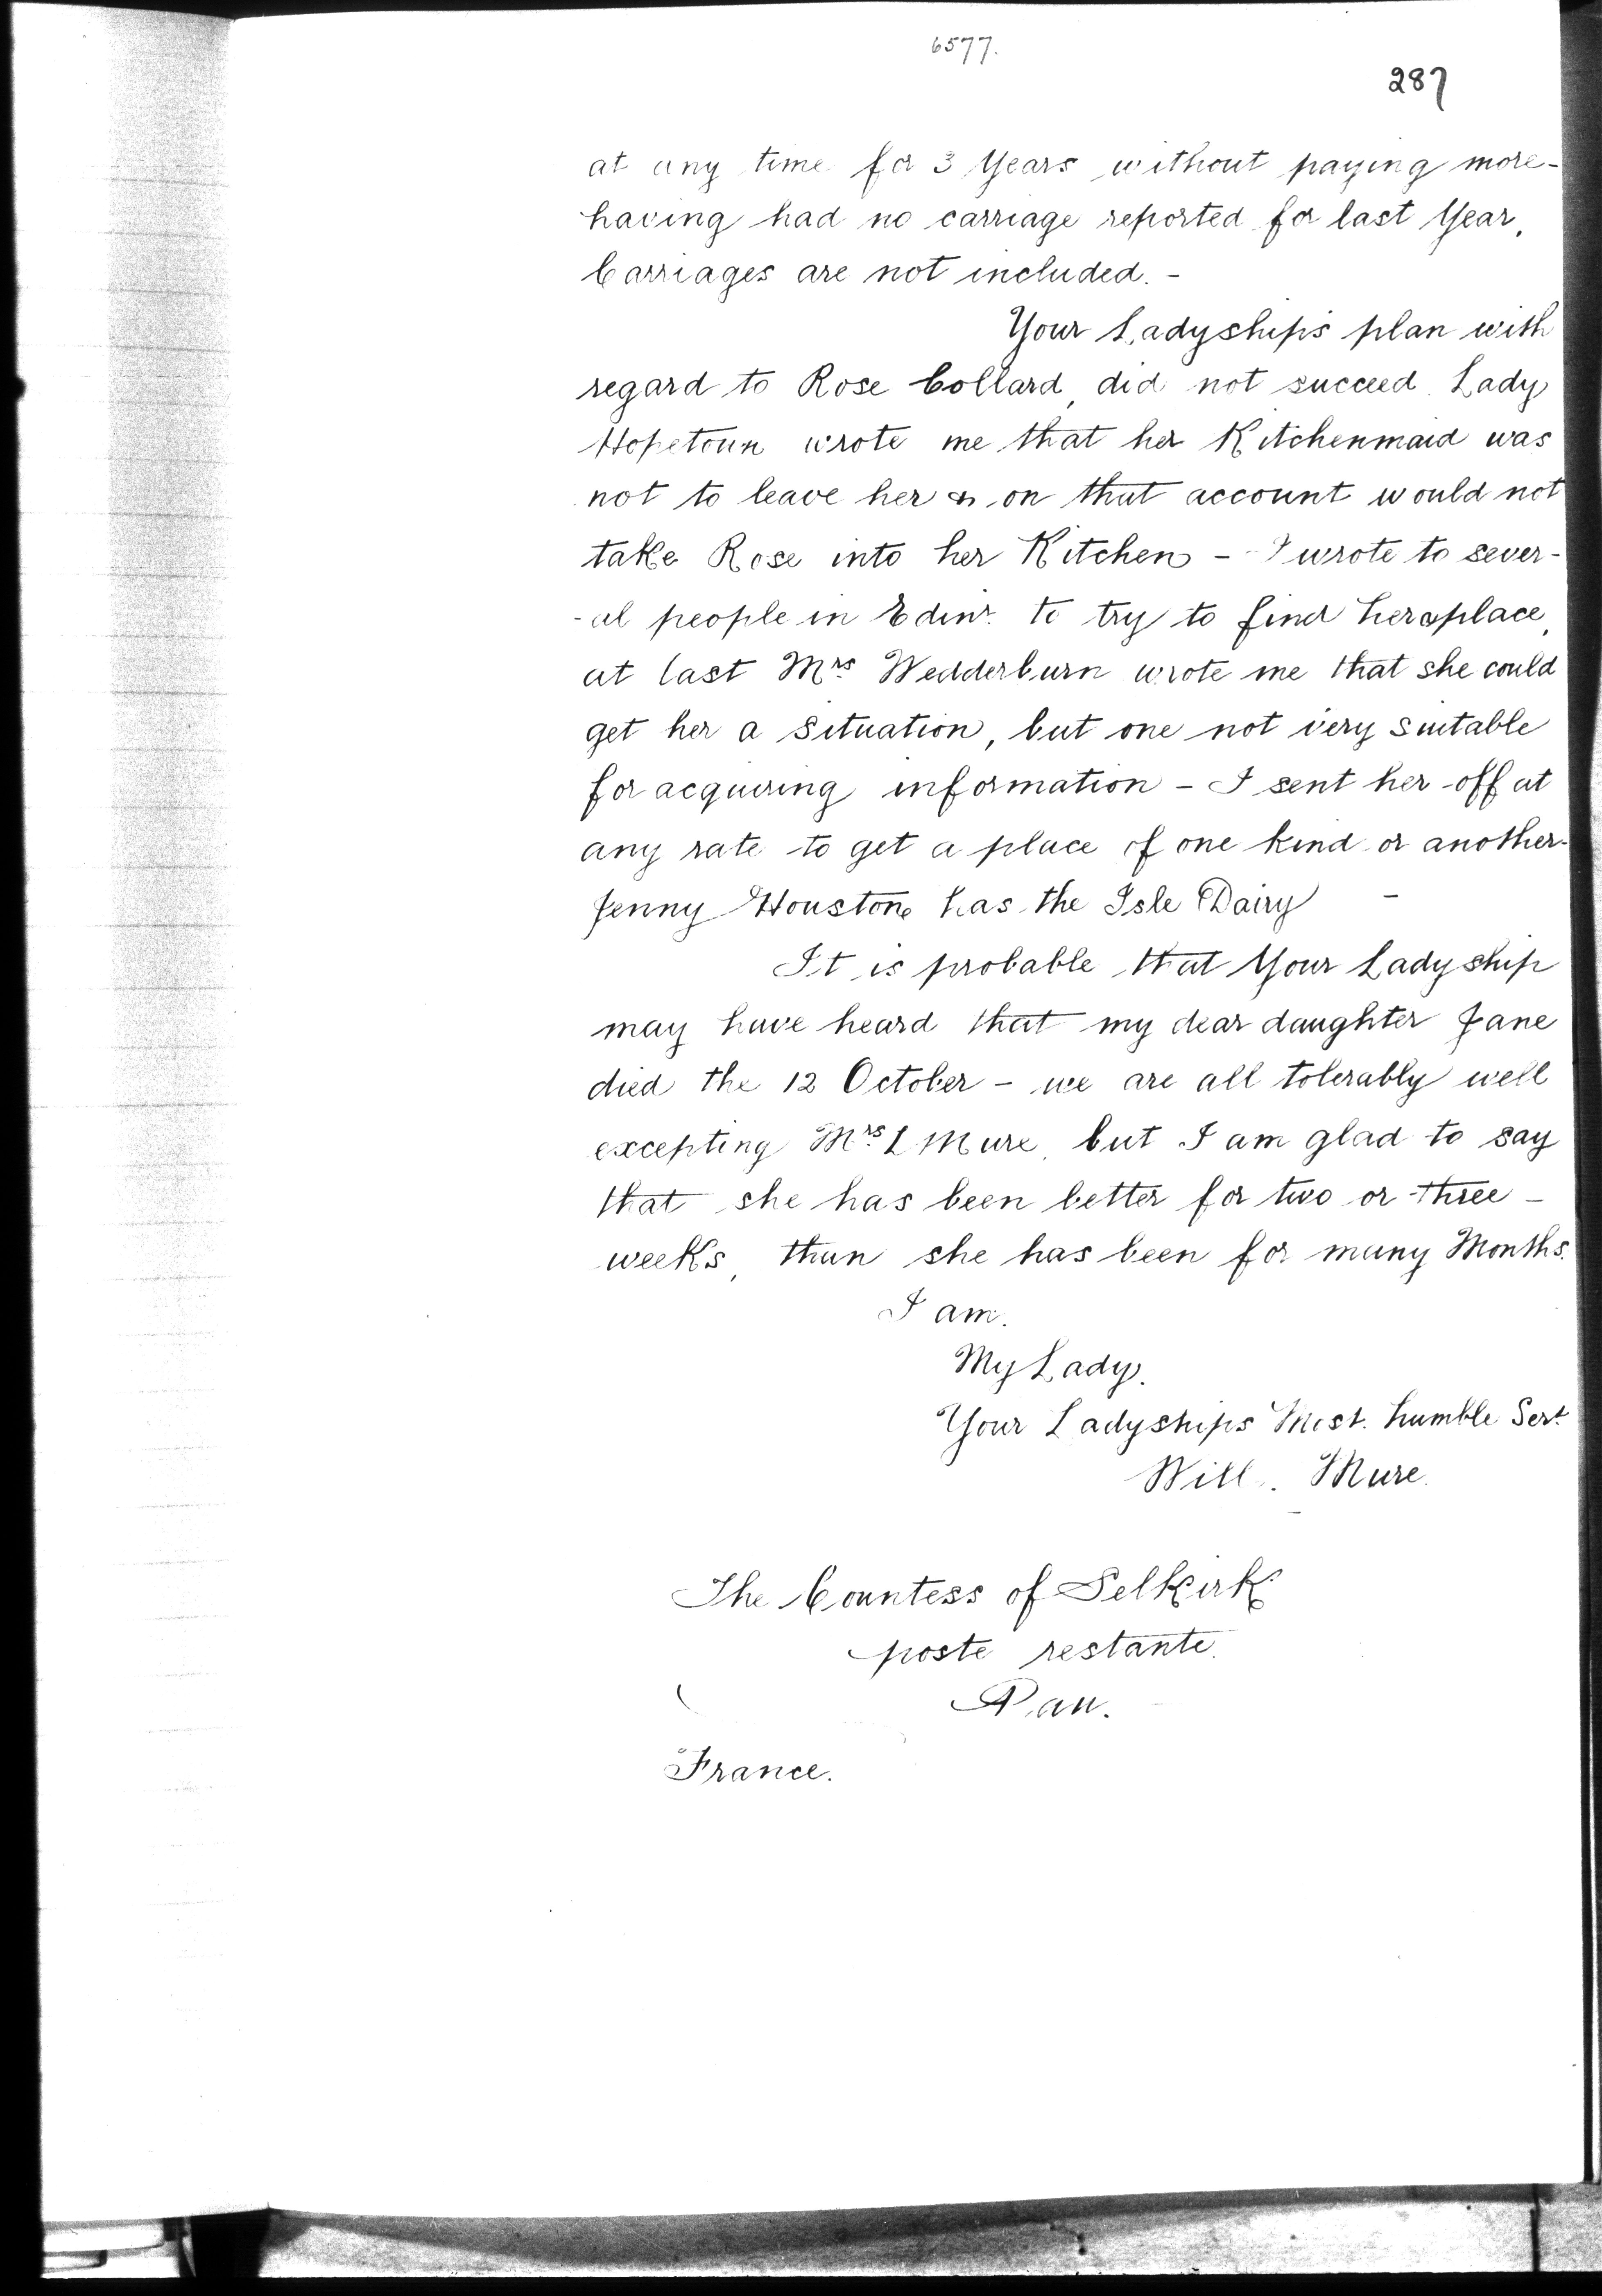 6577.
287
at any time for 3 Years without paying more-
having had no carriage reported for last Year,
Carriages are not included. -
Your Ladyship's plan with
regard to Rose Collard, did not succeed. Lady
Hopetoun wrote me that her Kitchenmaid was
not to leave her & on that account would not
take Rose into her Kitchen - I wrote to sever-
-al people in Edinr. to try to find her a place,
at last Mrs Wedderburn wrote me that she could
get her a situation, but one not very suitable
for acquiring information - I sent her off at
any rate to get a place of one kind or another-
Jenny Houstone has the Isle Dairy -
It is probable that Your Ladyship
may have heard that my dear daughter Jane
died the 12 October - we are all tolerably well
excepting Mrs L Mure, but I am glad to say
that she has been better for two or three -
weeks, than she has been for many Months.
I am.
My Lady.
Your Ladyships Most. humble Sert
Will. Mure.
The Countess of Selkirk
poste restante.
Pau.
France.